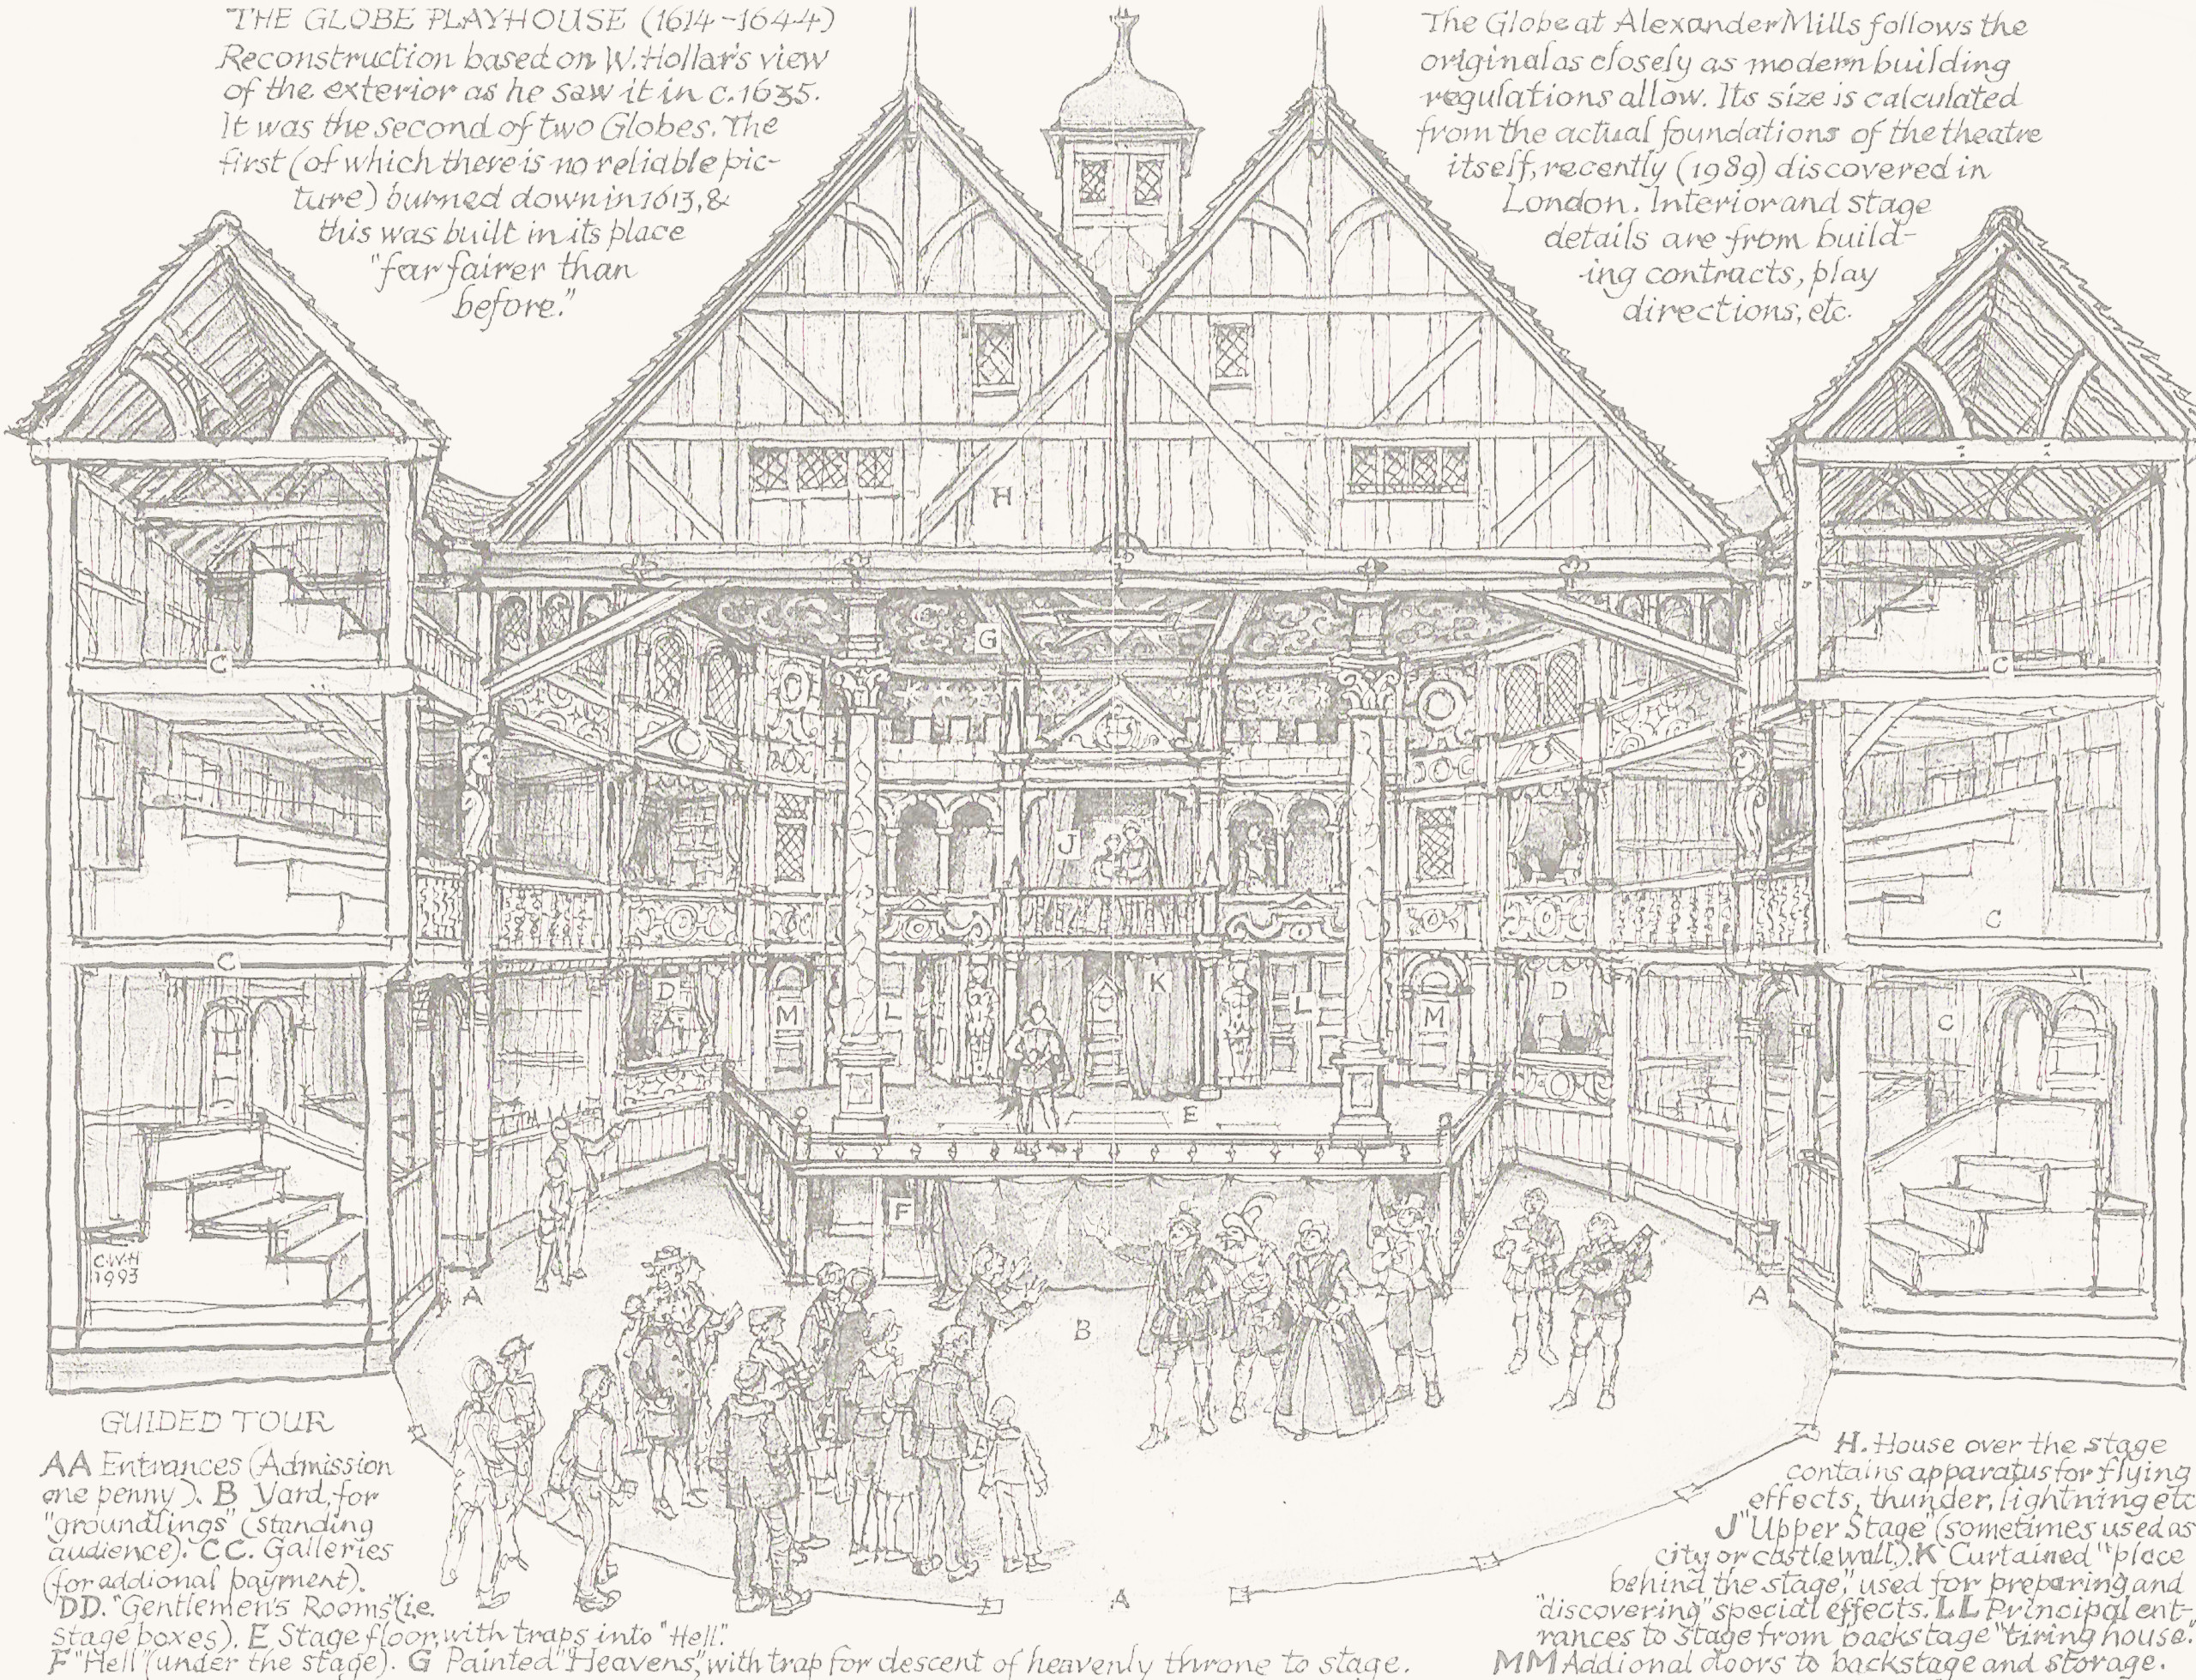 THE GLOBE PLAYHOUSE (1614-1644)
Reconstruction based on W. Hollar's view
of the exterior as he saw it in c.1635.
It was the second of two Globes. The
first (of which there is no reliable pic-
ture) burned down in 1613, &
this was built in its place
"far fairer than
before."
The Globe at Alexander Mills follows the
original as closely as modern building
regulations allow. Its size is calculated
from the actual foundations of the theatre
itself, recently (1989) discovered in
London. Interior and stage
details are from build-
ing contracts, play
directions, etc.
H
G
C
C
J
C
C
D
M
L
K
L
M
D
C
E
F
C.W.H
1993
A
A
B
A
GUIDED TOUR
AA Entrances (Admission
one penny). B Yard, for
"groundlings" (standing
audience). CC. Galleries
(for addional payment).
DD. "Gentlemen's Rooms" (i.e.
stage boxes). E Stage floor, with traps into "Hell".
F "Hell" (under the stage). G Painted "Heavens", with trap for descent of heavenly throne to stage.
H. House over the stage
contains apparatus for flying
effects, thunder, lightning etc
J "Upper Stage" (sometimes used as
city or castle wall). K Curtained "place
behind the stage," used for preparing and
"discovering" special effects. LL Principal ent-
rances to stage from backstage "tiring house."
MM Addional doors to backstage and storage.